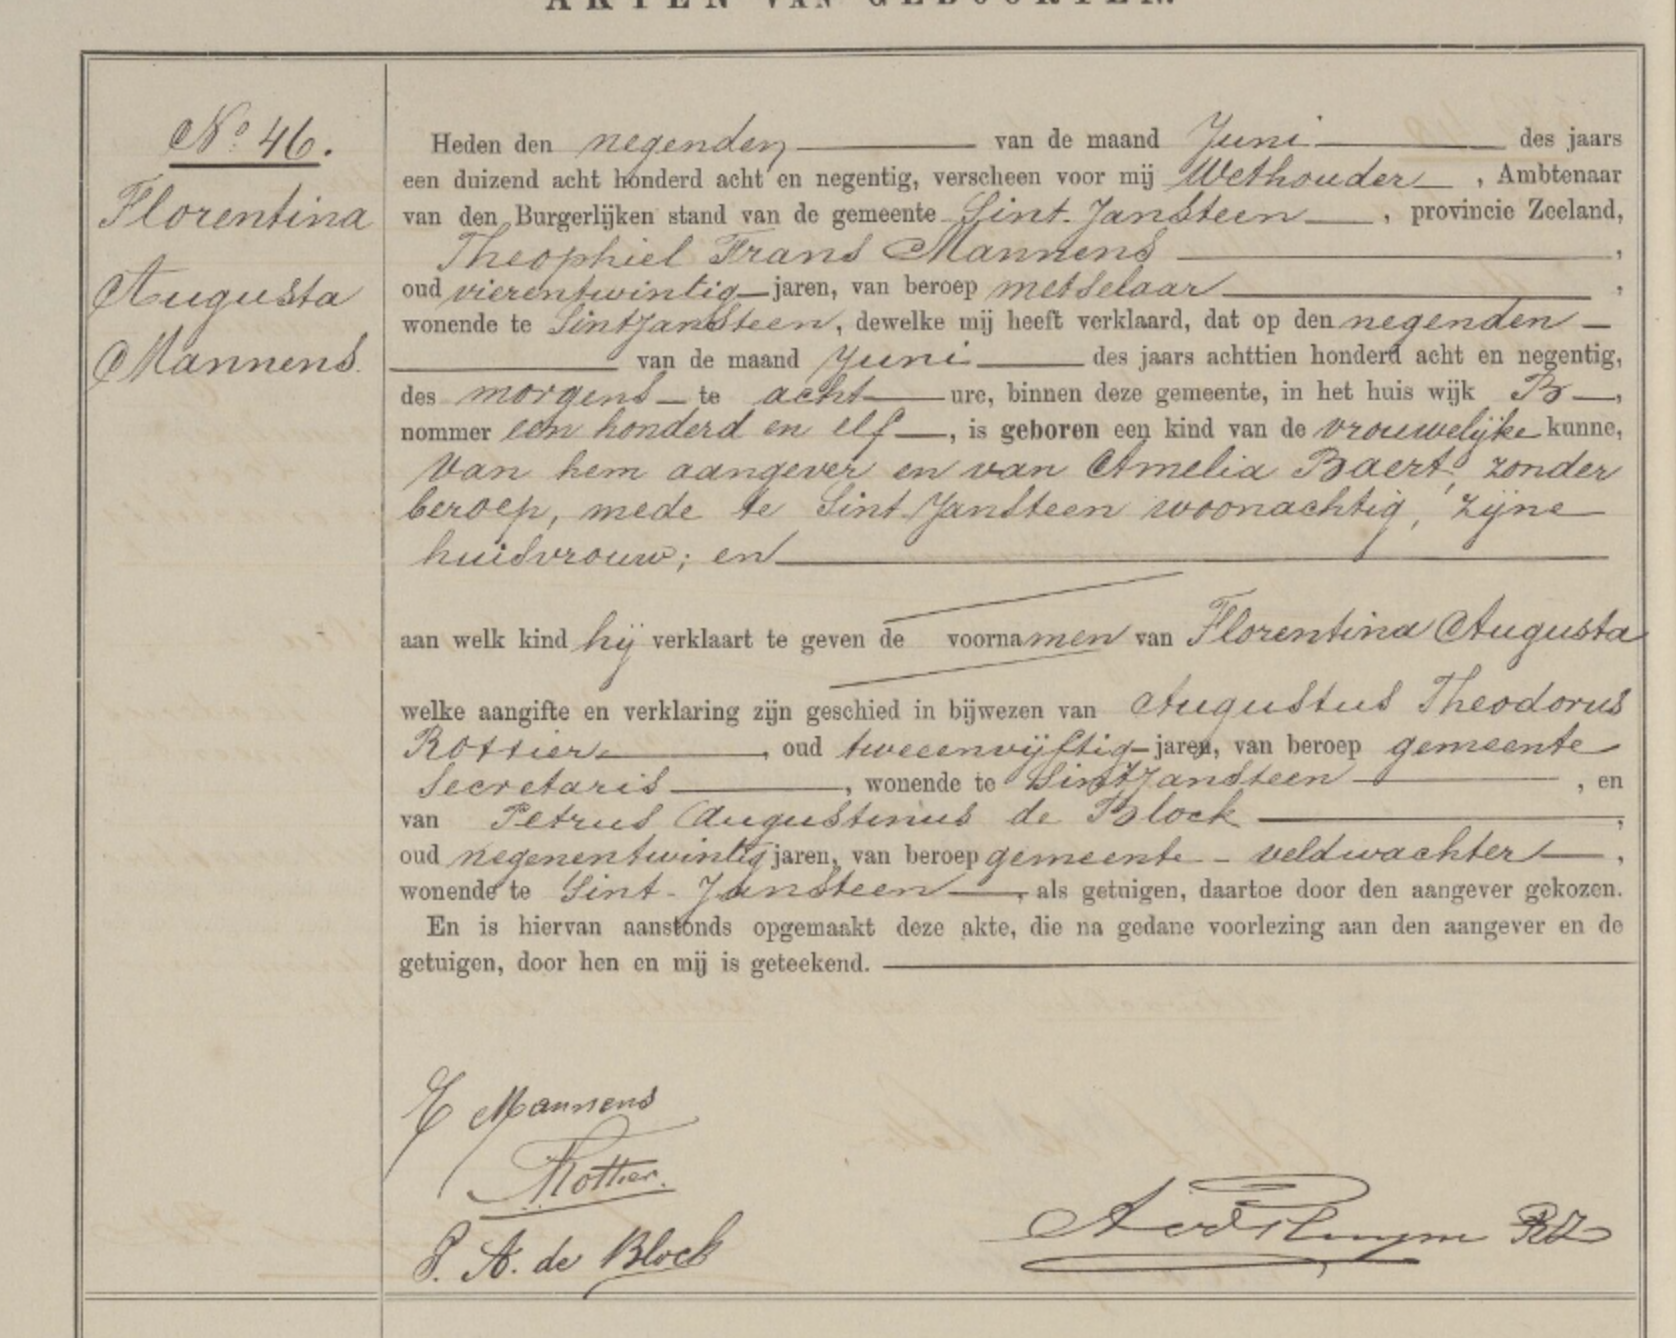 AKTEN VAN GEBOORTEN.
No. 46.
Florentina
Augusta
Mannens.
Heden den negenden van de maand Juni des jaars
een duizend acht honderd acht en negentig, verscheen voor mij Wethouder, Ambtenaar
van den Burgerlijken stand van de gemeente Sint-Jansteen, provincie Zeeland,
Theophiel Frans Mannens,
oud vierentwintig jaren, van beroep metselaar,
wonende te Sint Jansteen, dewelke mij heeft verklaard, dat op den negenden
van de maand Juni des jaars achttien honderd acht en negentig,
des morgens te acht ure, binnen deze gemeente, in het huis wijk B,
nommer een honderd en elf, is geboren een kind van de vrouwelijke kunne,
van hem aangever en van Amelia Baert, zonder
beroep, mede te Sint Jansteen woonachtig, zijne
huisvrouw; en
aan welk kind hij verklaart te geven de voornamen van Florentina Augusta
welke aangifte en verklaring zijn geschied in bijwezen van Augustus Theodorus
Rottier, oud tweeenvijftig jaren, van beroep gemeente
Secretaris, wonende te Sint Jansteen, en
van Petrus Augustinus de Block,
oud negenentwintig jaren, van beroep gemeente-veldwachter,
wonende te Sint-Jansteen, als getuigen, daartoe door den aangever gekozen.
En is hiervan aanstonds opgemaakt deze akte, die na gedane voorlezing aan den aangever en de
getuigen, door hen en mij is geteekend.
Mannens
Rottier.
P. A. de Block